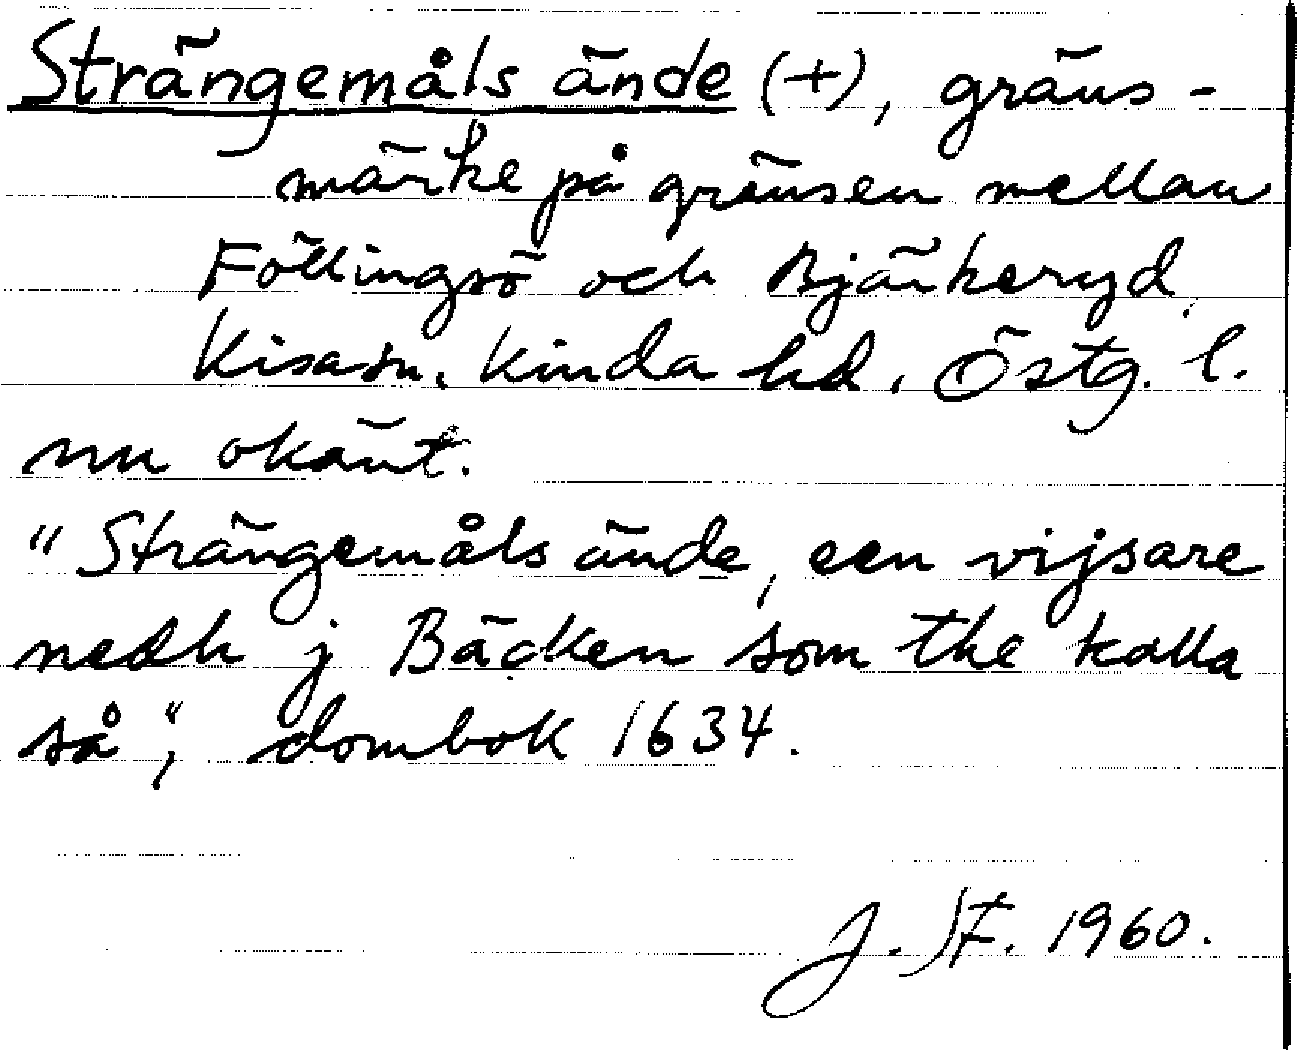 Strängemåls ände (+), gräns-
märke på gränsen mellan
Föllingsö och Bjärkeryd,
Kisasn. Kinda hd. Östg. l.
nu okänt.
"Strängemåls ände, een vijsare
nedh j Bäcken som the kalla
så", dombok 1634.
J. 1960.